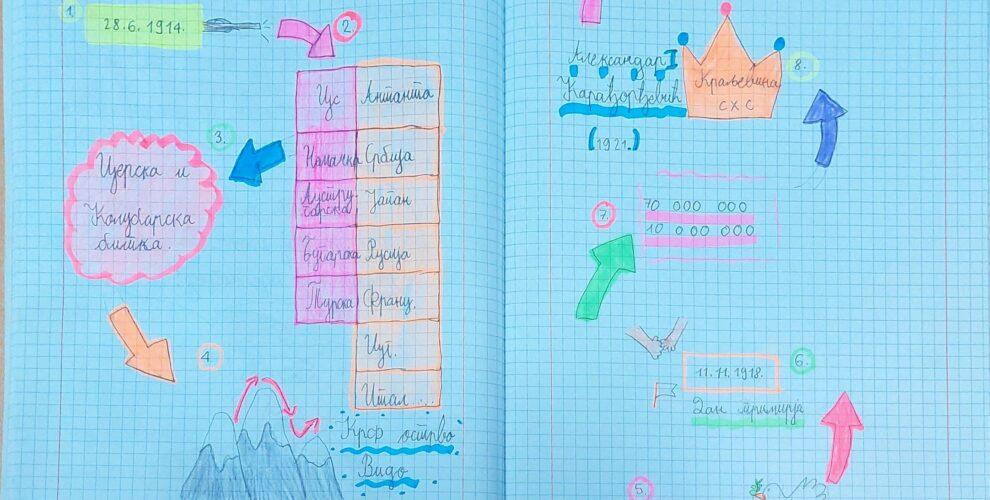 1.
28.6.1914.
2.
Цс Антанта
Немачка Србија
Аустру-
гарска Јапан
Бугарска Русија
Турска Франц.
Иут.
Итал...
3.
Церска и
Колубарска
битка.
4.
Крф острво
Видо
5.
6.
11.11.1918.
Дан примирја
7.
70 000 000
10 000 000
8.
Александар I
Карађорђевић
(1921.)
Краљевина
СХС